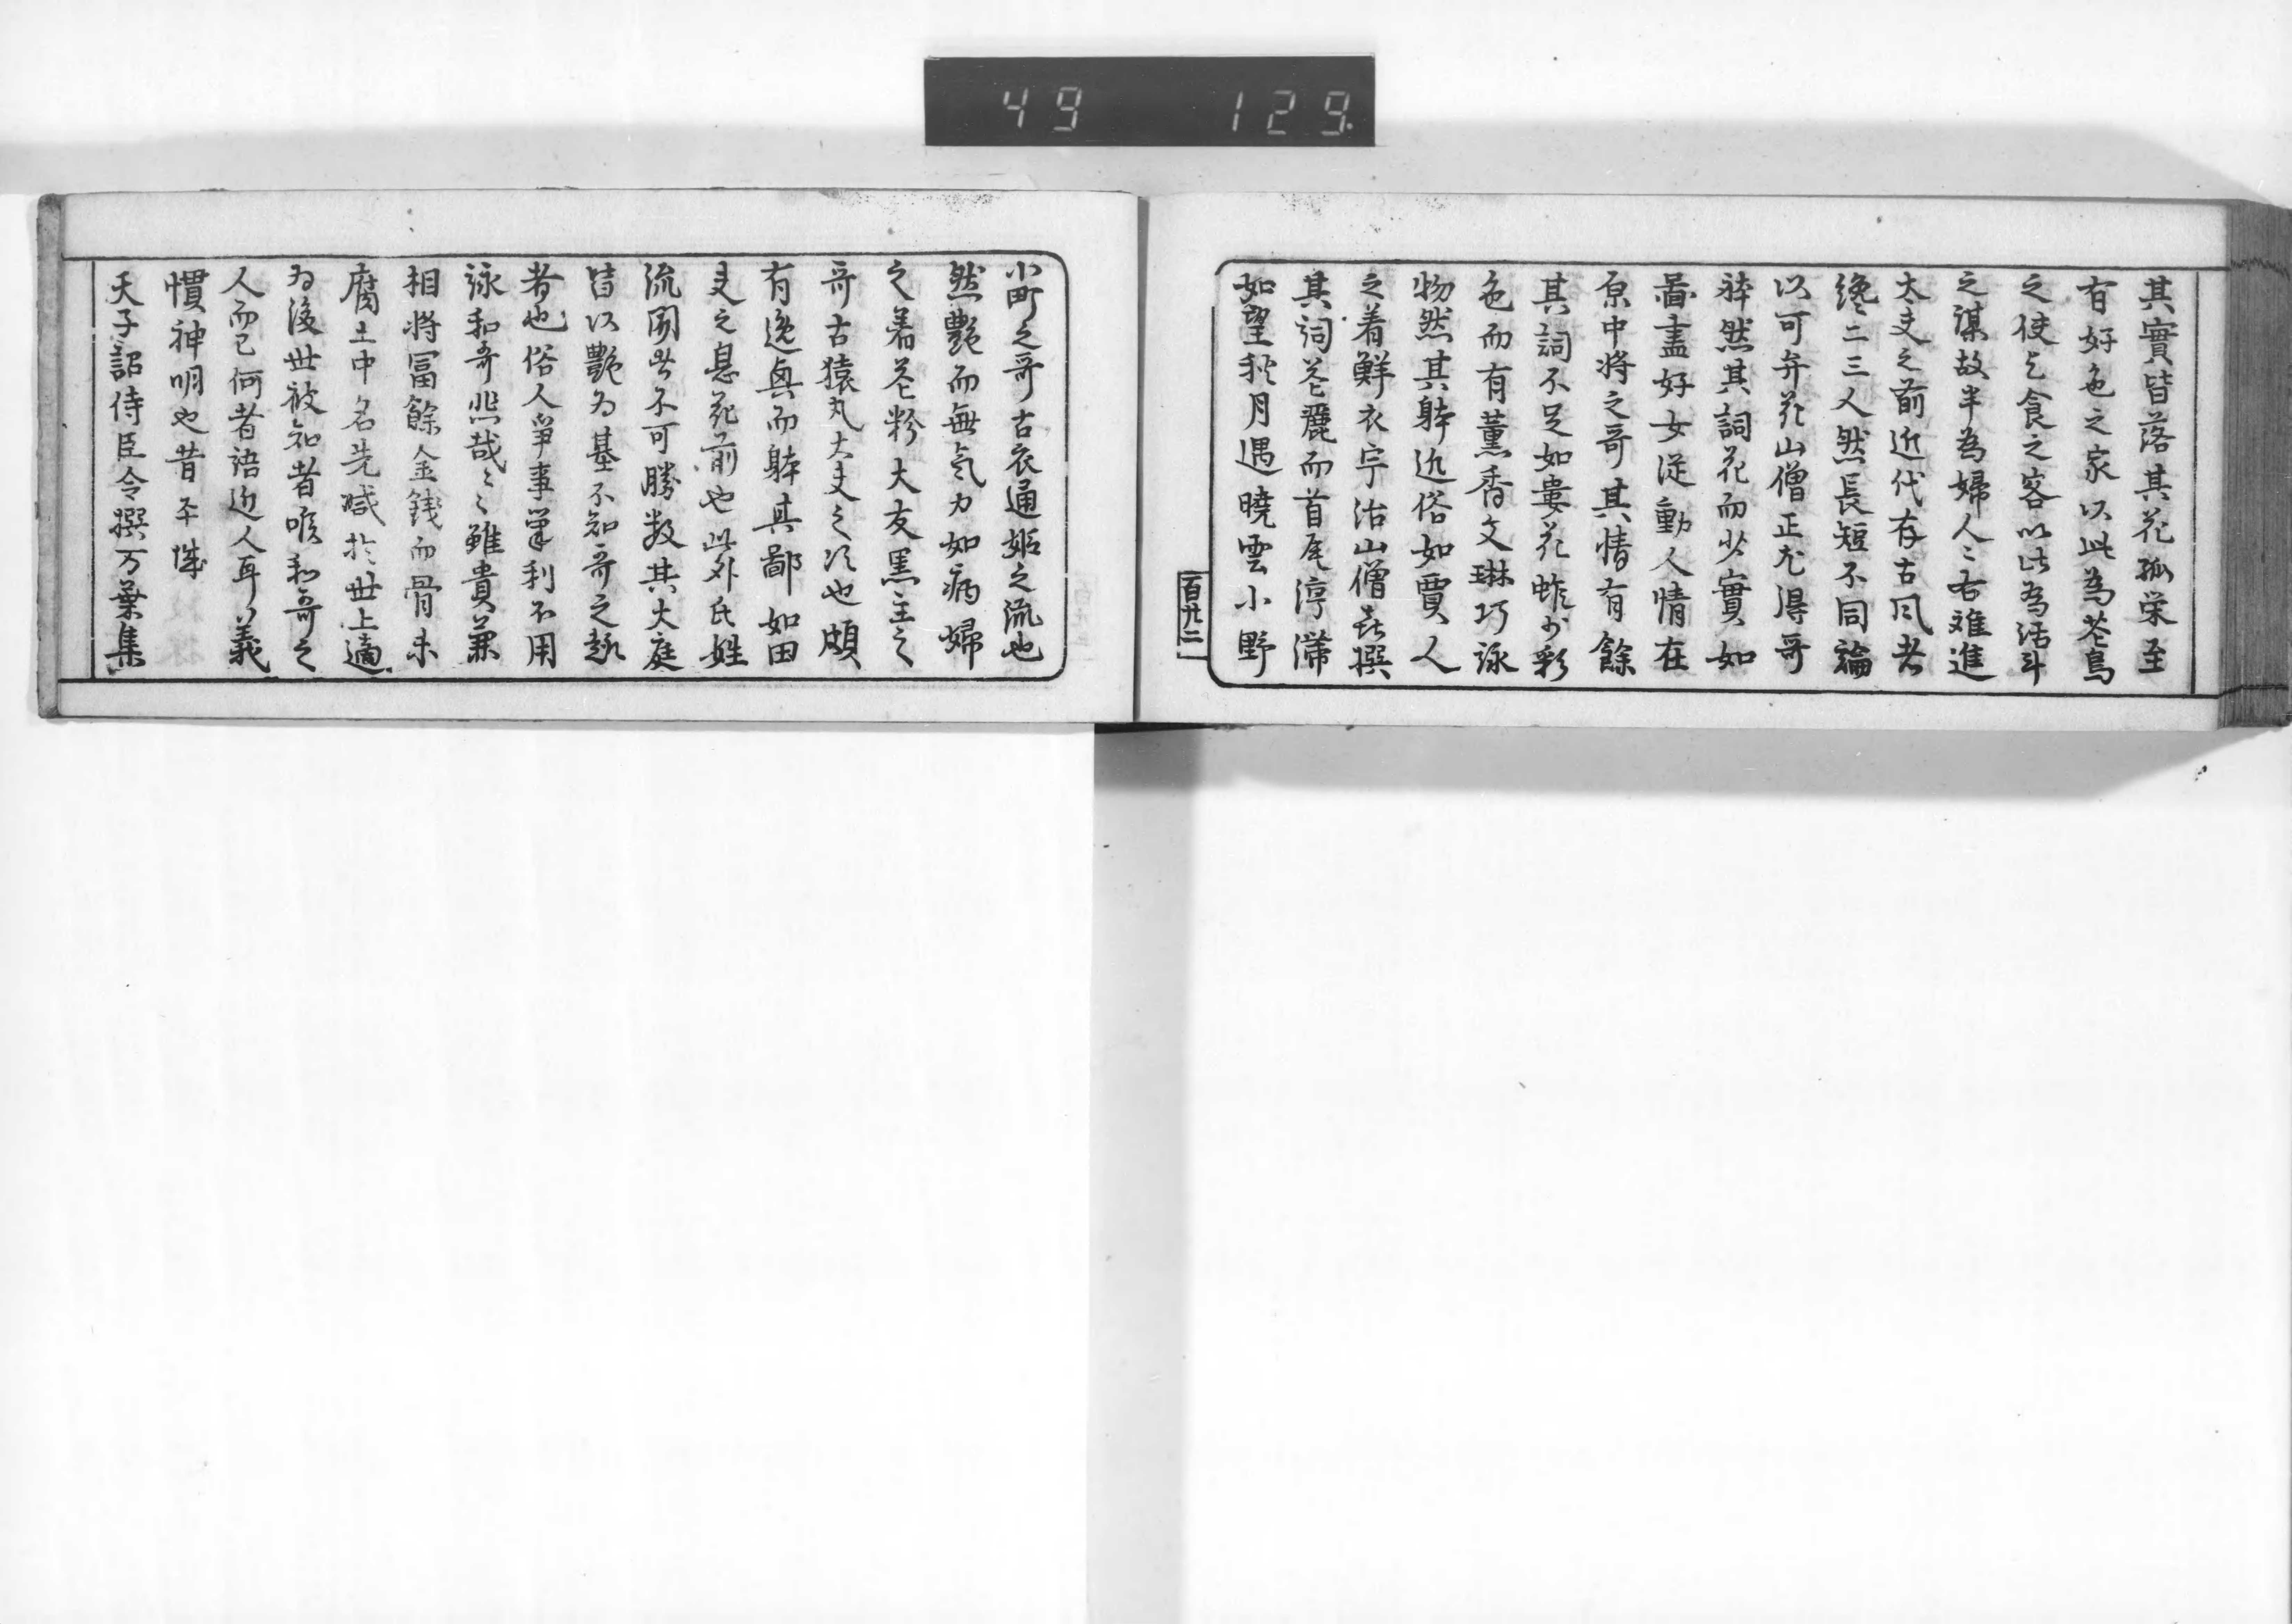 49 129
其實皆落其花孤栄至
有好色之家以此為花鳥
之使乞食之客以此為活斗
之謀故半為婦人之右难進
大夫之前近代存古風者
纔二三人然長短不同論
以可弁花山僧正尤得哥
躰然其詞花而少實如
啚畫好女従動人情在
原中将之哥其情有餘
其詞不足如萎花雖少彩
色而有薫香文琳巧詠
物然其躰近俗如賈人
之着鮮衣宇治山僧喜撰
其詞花麗而首尾渟滞
如望秋月遇曉雲小野
百廿二
小町之哥古衣通姫之流也
然艶而無気力如病婦
之着花粉大友黒主之
哥古猿丸大夫之次也頗
有逸興而躰其鄙如田
夫之息花前也此外氏姓
流聞者不可勝数其大底
皆以艶為基不知哥之趣
者也俗人争事栄利不用
詠和哥悲哉々々雖貴兼
相将冨餘金銭而骨未
腐土中名先滅於世上適
为後世被知者唯和哥之
人而已何者語近人耳義
慣神明也昔平城
天子詔侍臣令撰万葉集